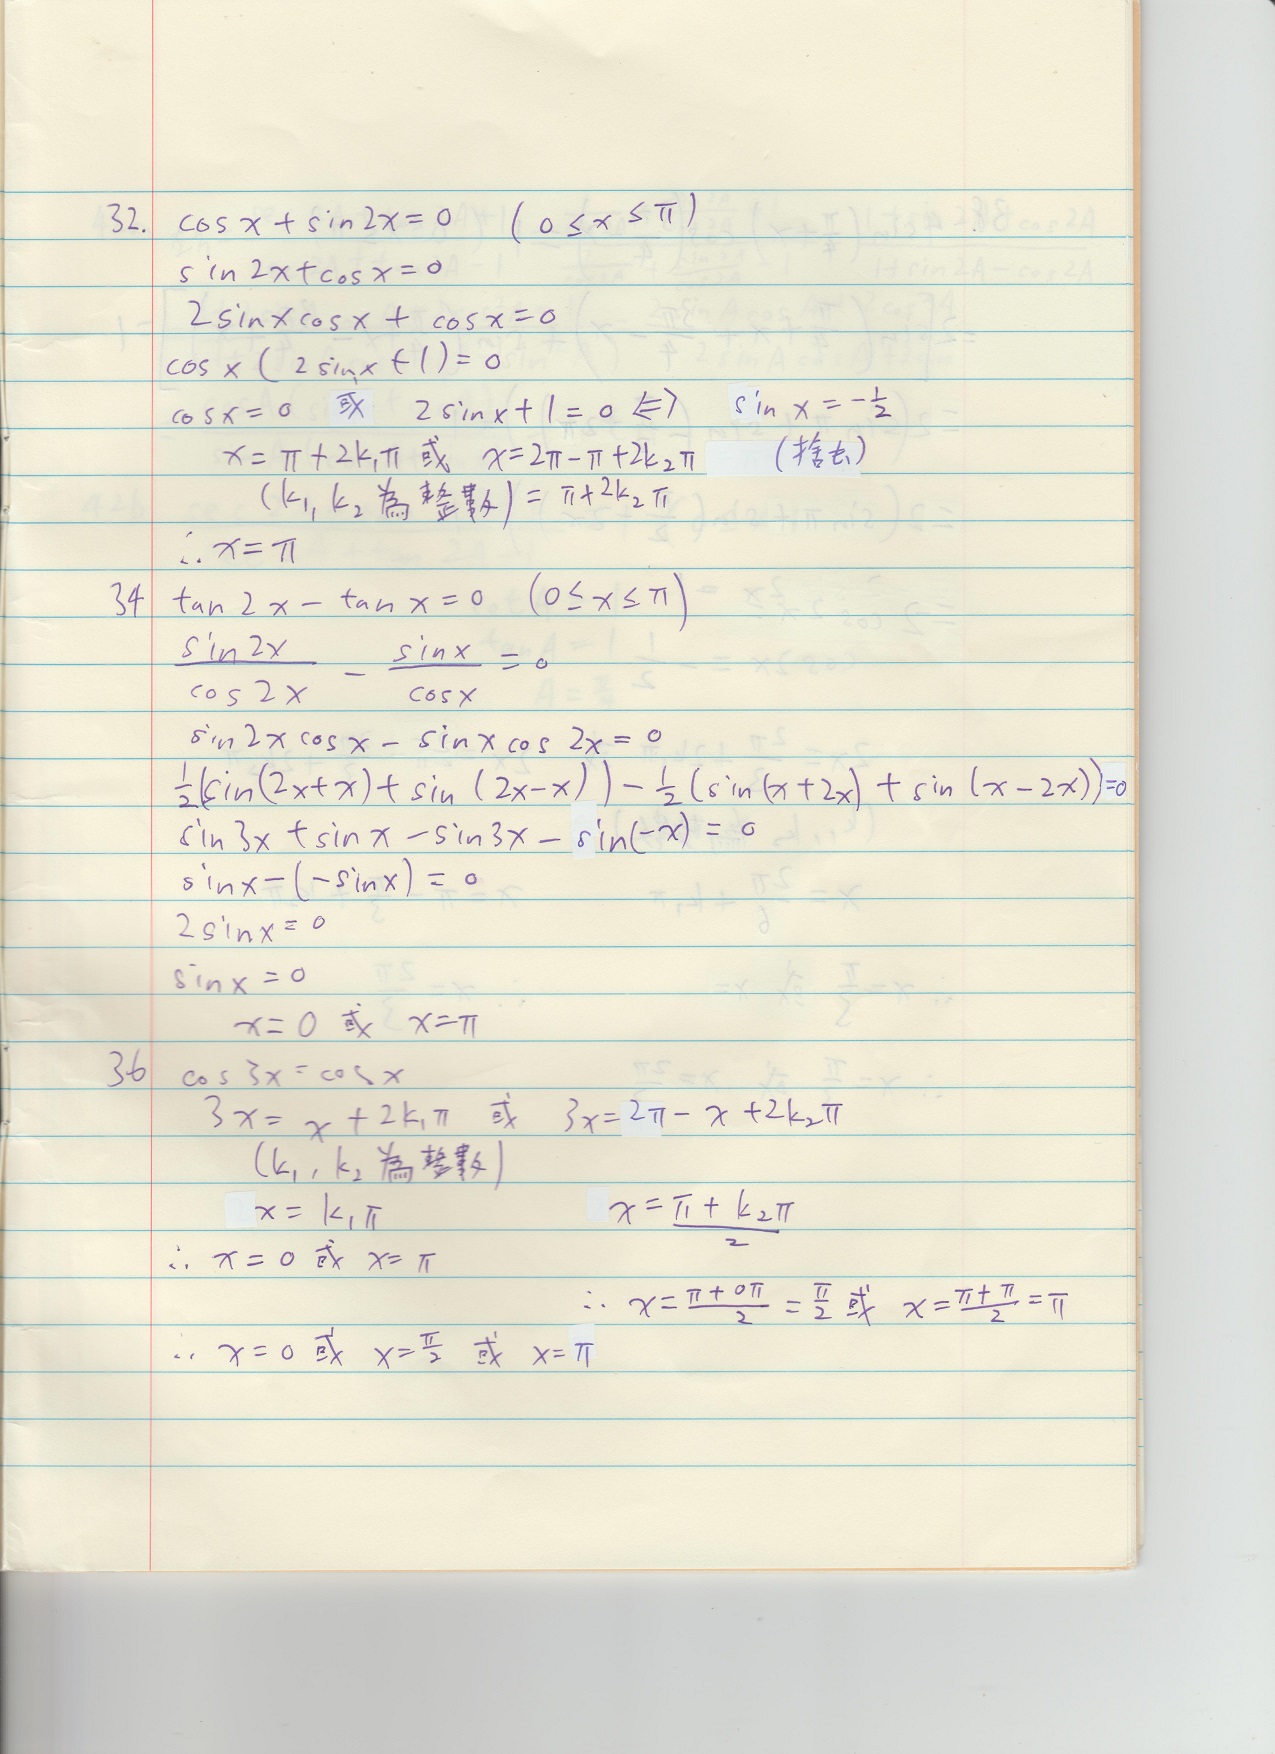 32. cos x + sin 2x = 0 (0 ≤ x ≤ π)
sin 2x + cos x = 0
2 sin x cos x + cos x = 0
cos x (2 sin x + 1) = 0
cos x = 0 或 2 sin x + 1 = 0 ⇔ sin x = -1/2
x = π + 2k₁π 或 x = 2π - π + 2k₂π (捨去)
(k₁, k₂ 為整數) = π + 2k₂π
∴ x = π
34 tan 2x - tan x = 0 (0 ≤ x ≤ π)
sin 2x / cos 2x - sin x / cos x = 0
sin 2x cos x - sin x cos 2x = 0
1/2 (sin(2x + x) + sin (2x - x)) - 1/2 (sin (x + 2x) + sin (x - 2x)) = 0
sin 3x + sin x - sin 3x - sin(-x) = 0
sin x - (-sin x) = 0
2 sin x = 0
sin x = 0
x = 0 或 x = π
36 cos 3x = cos x
3x = x + 2k₁π 或 3x = 2π - x + 2k₂π
(k₁, k₂ 為整數)
x = k₁π x = (π + k₂π)/2
∴ x = 0 或 x = π
∴ x = (π + 0π)/2 = π/2 或 x = (π + π)/2 = π
∴ x = 0 或 x = π/2 或 x = π